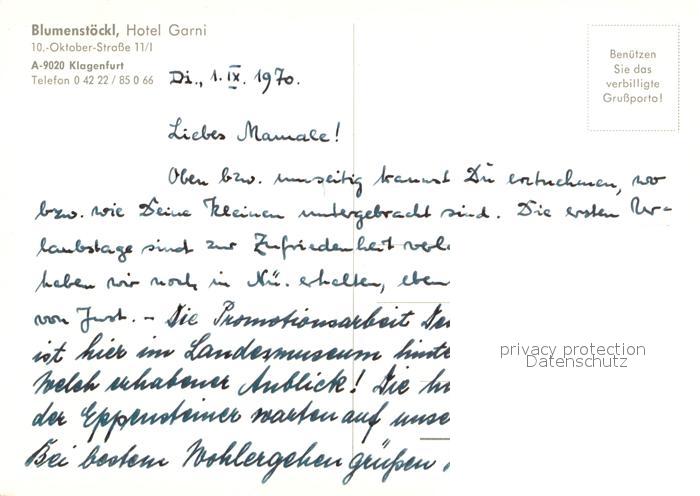 Blumenstöckl, Hotel Garni
10.-Oktober-Straße 11/I
A-9020 Klagenfurt
Telefon 0 42 22 / 85 0 66
Benützen
Sie das
verbilligte
Grußporto!
Di., 1. IX. 1970.
Liebes Mamale!
Oben bzw. umseitig kannst Du entnehmen, wo
bzw. wie Deine Kleinen untergebracht sind. Die ersten Ur-
laubstage sind zur Zufriedenheit verl
haben wir noch in Nü. erhalten, eben
von Just. – Die Promotionsarbeit
ist hier im Landesmuseum hinte
Welch erhabener Anblick! Die
der Eppensteiner warten auf unse
Bei bestem Wohlergehen grüßen
privacy protection
Datenschutz